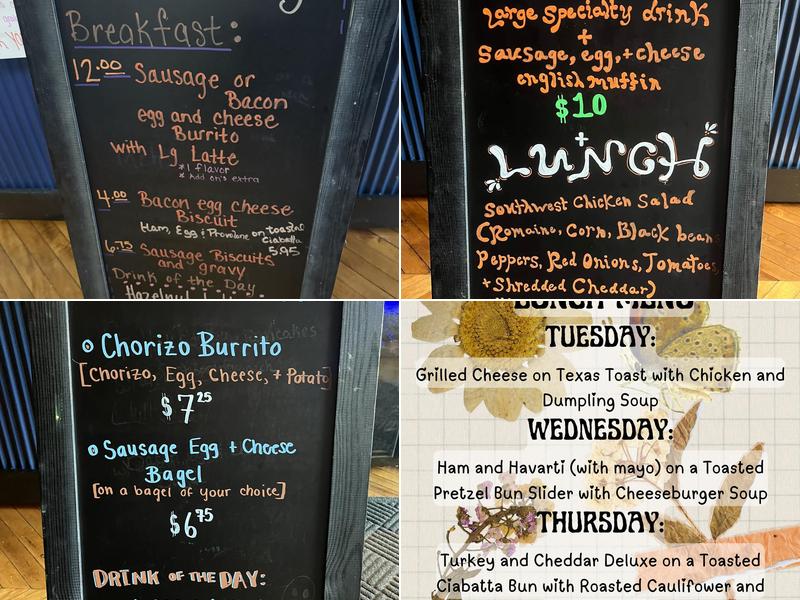 Breakfast:
12.00 Sausage or
Bacon
egg and cheese
Burrito
with Lg Latte
*1 flavor
* Add on's extra
4.00 Bacon egg cheese
Biscuit
Ham, Egg & Provolone on toasted
Ciabatta
5.95
6.75 Sausage Biscuits
and gravy
Drink of the Day
Hazelnut
Large Specialty drink
+
Sausage, egg, + cheese
english muffin
$10
+
LUNCH
Southwest Chicken Salad
(Romaine, Corn, Black beans
Peppers, Red Onions, Tomatoes,
+ Shredded Cheddar)
Chorizo Burrito
[Chorizo, Egg, Cheese, + Potato]
$7.25
Sausage Egg + Cheese
Bagel
[on a bagel of your choice]
$6.75
DRINK OF THE DAY:
LUNCH MENU
TUESDAY:
Grilled Cheese on Texas Toast with Chicken and
Dumpling Soup
WEDNESDAY:
Ham and Havarti (with mayo) on a Toasted
Pretzel Bun Slider with Cheeseburger Soup
THURSDAY:
Turkey and Cheddar Deluxe on a Toasted
Ciabatta Bun with Roasted Caulifower and